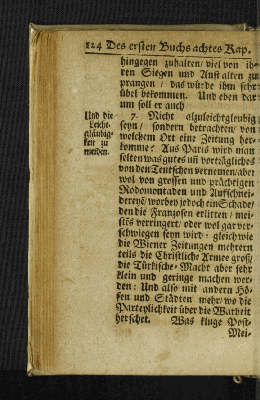 124 Des ersten Buchs achtes Kap.
hingegen zuhalten/ viel von ih-
ren Siegen und Anstalten zu
prangen / das würde ihm sehr
übel bekommen. Und eben dar-
um soll er auch
Und die
Leicht-
gläubig-
keit zu
meiden.
7. Nicht alzuleichtgleubig
seyn/ sondern betrachten/ von
welchem Ort eine Zeitung her-
komme? Aus Paris wird man
selten was gutes uñ vorträgliches
von den Teutschen vernemen/ aber
wol von grossen und prächtigen
Rodomontaden und Aufschnei-
dereyē/ worbey jedoch ein Schade/
den die Franzosen erlitten / mei-
stēs verringert/ oder wol gar ver-
schwiegen seyn wird: gleich wie
die Wiener Zeitungen mehrern
teils die Christliche Armee groß/
die Türkische Macht aber sehr
klein und geringe machen wer-
den: Und also mit andern Hö-
fen und Städten mehr/ wo die
Parteylichkeit über die Warheit
herschet. Was kluge Post-
Mei-